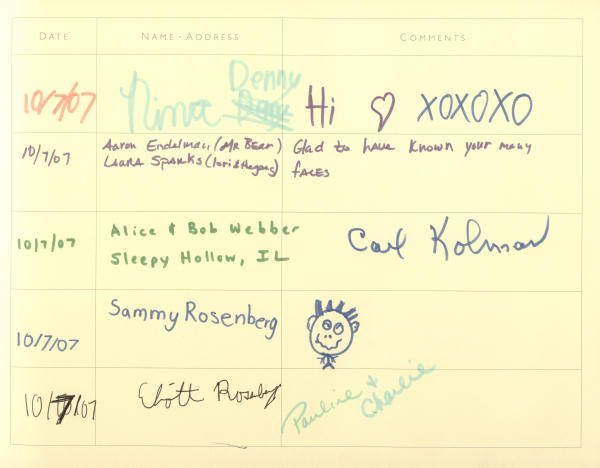 DATE NAME - ADDRESS COMMENTS
10/7/07 Nina Denny Hi XOXOXO
10/7/07 Aaron Endelman (MR BEAR) Glad to have known your many
LAARA SPARKS (lori & the gang) faces
10/7/07 Alice & Bob Webber Carl Kolman
Sleepy Hollow, IL
10/7/07 Sammy Rosenberg
10/7/07 Elliott Rosenberg Pauline + Charlie